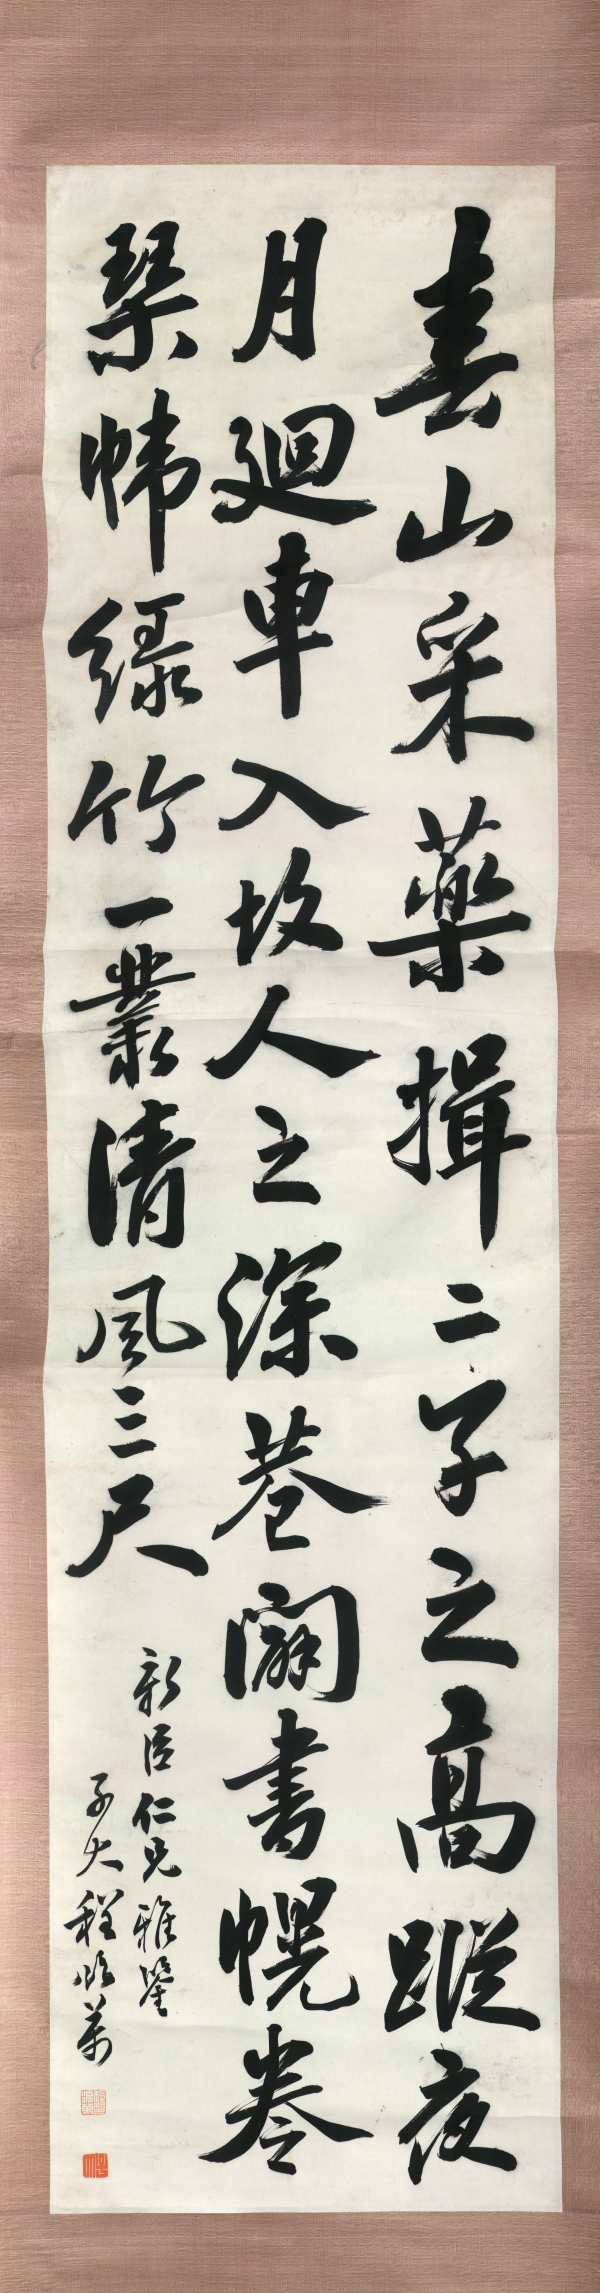 春山采藥揖二子之高蹤夜
月迴車入故人之深巷闢書幌卷
琴幃綠竹一叢清風三尺
新臣仁兄雅鑒
子大程頌萬